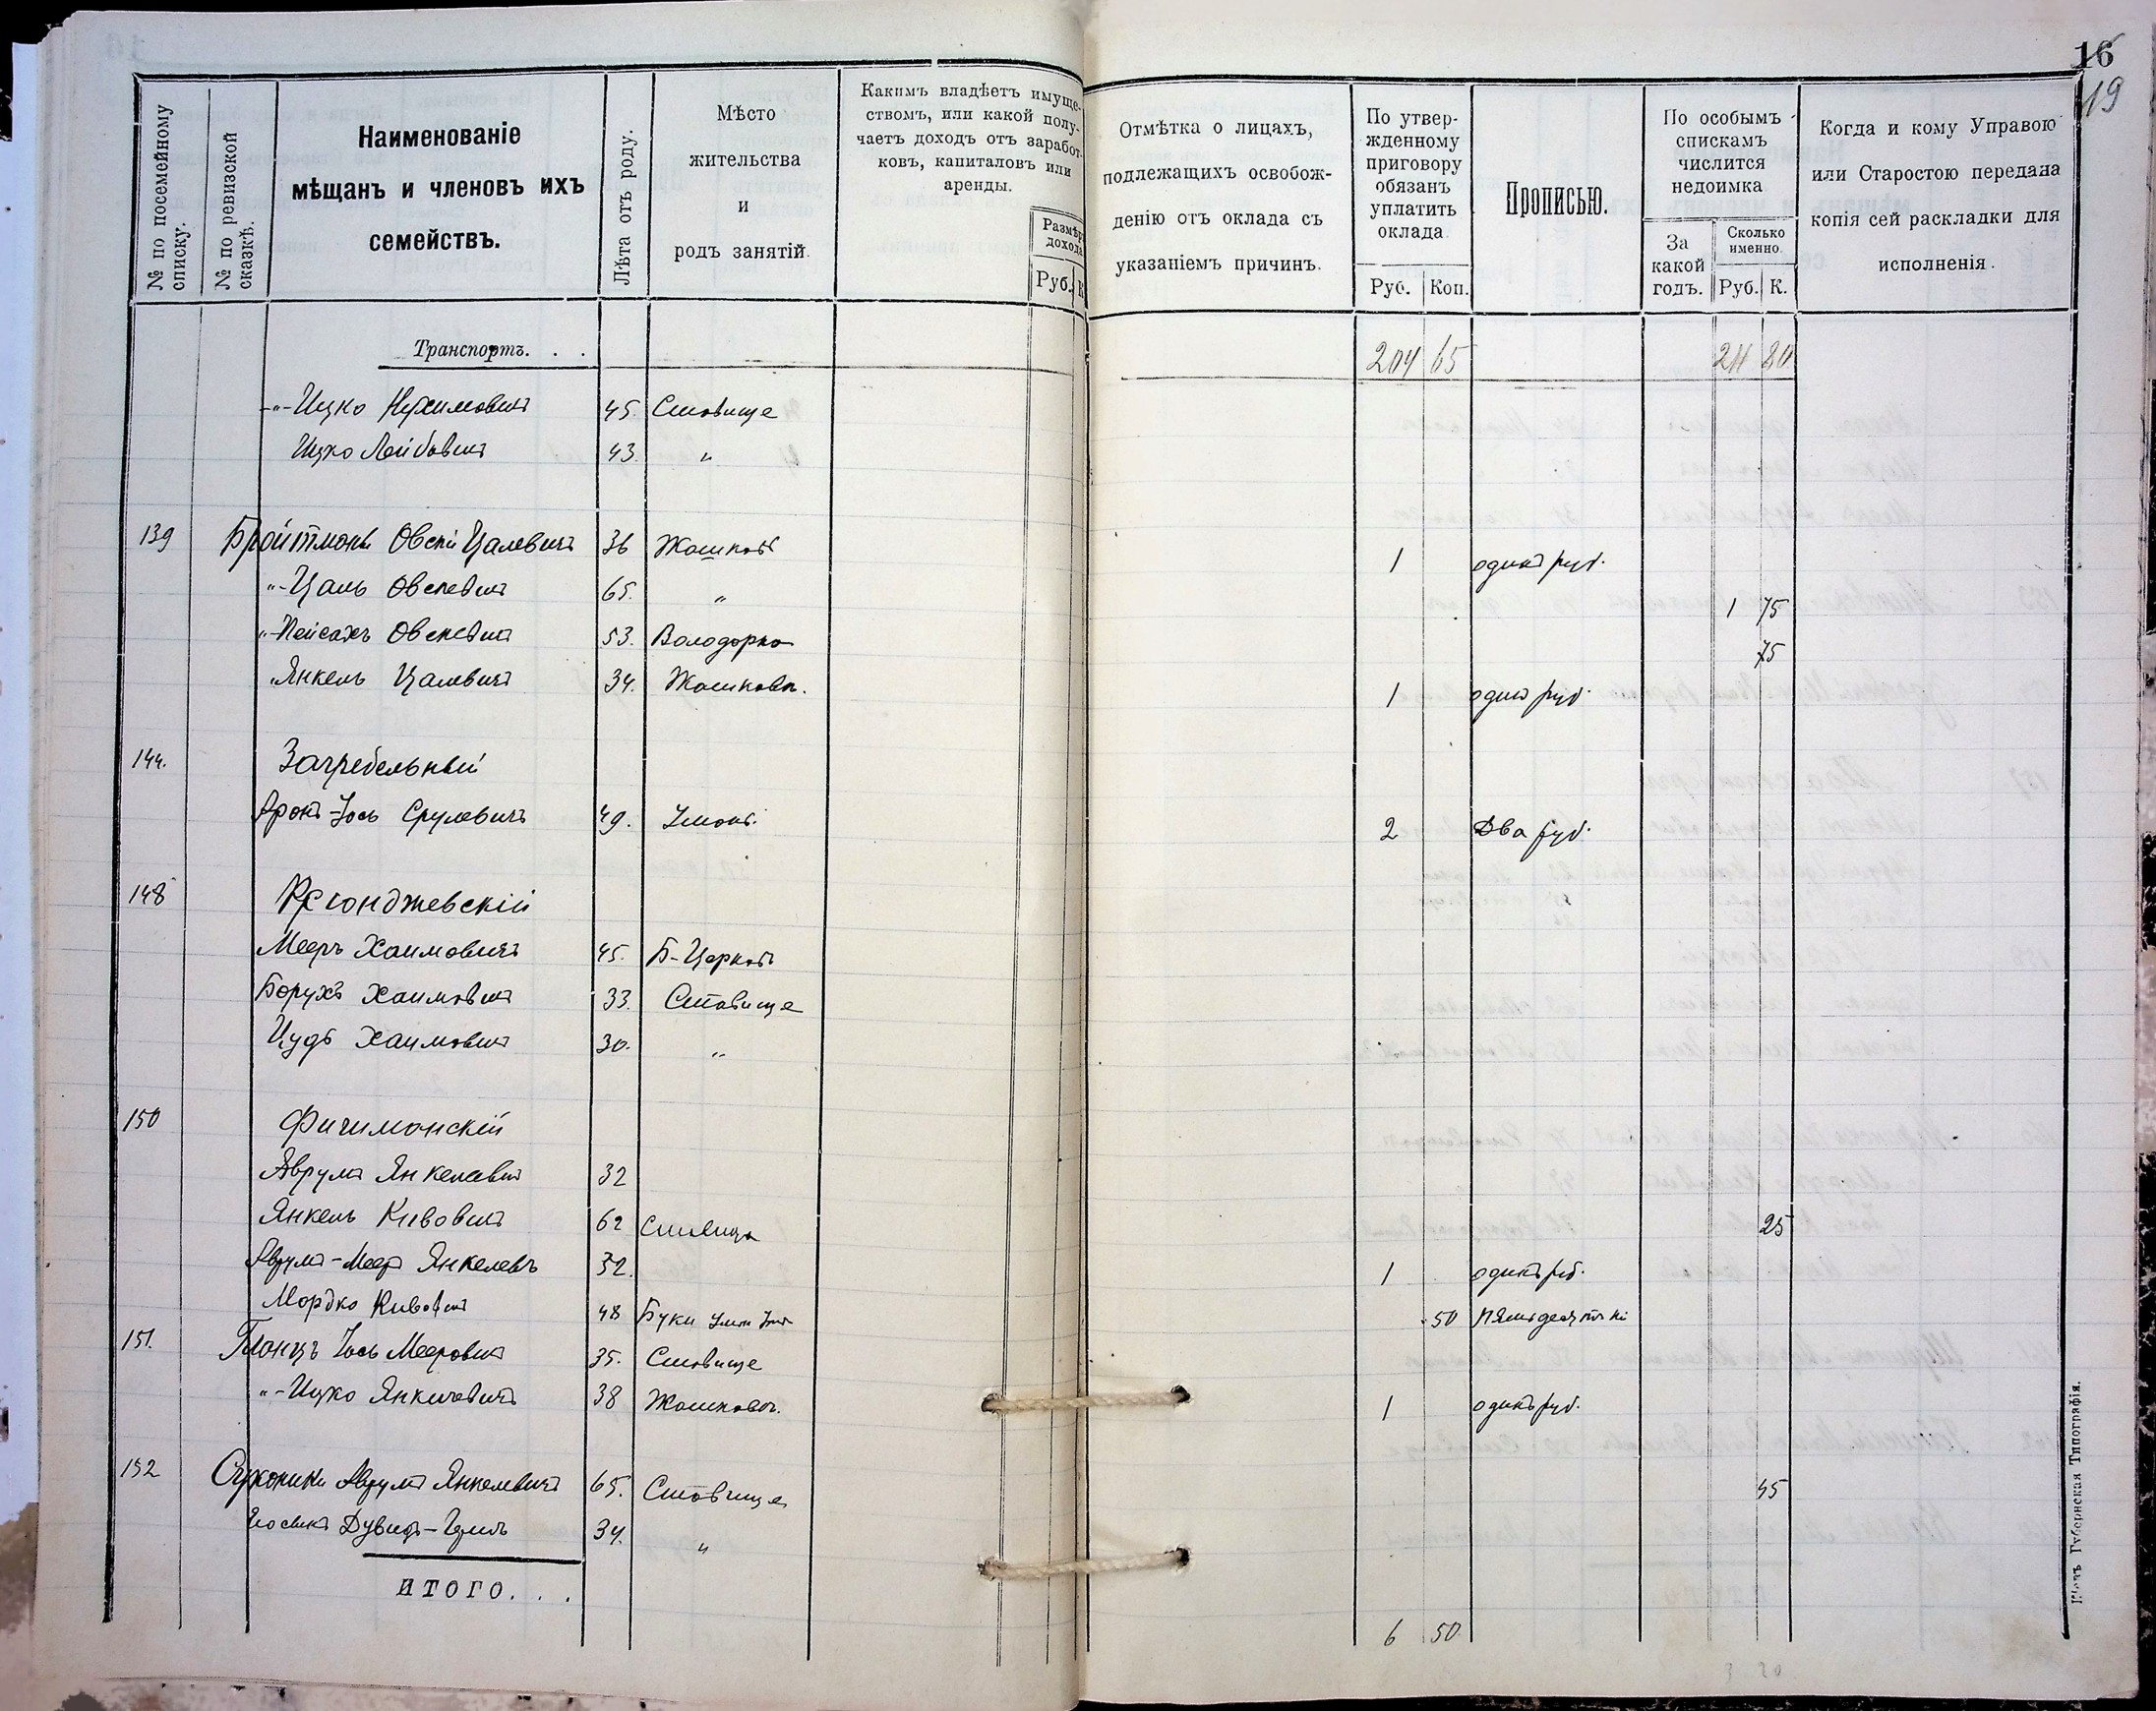 16
19
№ по посемейному списку.
№ по ревизской сказкѣ.
Наименованіе
мѣщанъ и членовъ ихъ
семействъ.
Лѣта отъ роду.
Мѣсто
жительства
и
родъ занятій.
Какимъ владѣетъ имуще-
ствомъ, или какой полу-
чаетъ доходъ отъ заработ-
ковъ, капиталовъ или
аренды.
Размѣръ
дохода
Руб. К
Отмѣтка о лицахъ,
подлежащихъ освобож-
денію отъ оклада съ
указаніемъ причинъ.
По утвер-
жденному
приговору
обязанъ
уплатить
оклада
Руб. Коп.
Прописью.
По особымъ
спискамъ
числится
недоимка
За
какой
годъ.
Сколько
именно.
Руб. К.
Когда и кому Управою
или Старостою передана
копія сей раскладки для
исполненія.
Транспортъ. . . 204 65
-"- Ицко Нухимовичъ 45. Ставище
Ицко Лейбовичъ 43. "
139 Бройтманъ Овсій Цалевичъ 36 Жашковъ 1 одинъ руб.
"- Цаль Овсеевичъ 65. " 1 75
"- Пейсахъ Овсеевичъ 53. Володарка 75
" Янкель Цалевичъ 34. Жашковъ. 1 одинъ руб.
144. Загребельный
Аронъ-Іось Срулевичъ 49. Умань. 2 Два руб.
148
Мееръ Хаимовичъ 45. Б-Церковь
Борухъ Хаимовичъ 33. Ставище
Хаимовичъ 30. "
150 Фичиманскій
Аврумъ Янкелевичъ 32
Янкель Кивовичъ 62 Ставище 25
Аврумъ-Мееръ Янкелевъ 32. 1 одинъ руб.
Мордко Кивовичъ 48 Буки 50 пятьдесятъ к.
151. Іось Мееровичъ 35. Ставище
"- Ицко Янкелевичъ 38 Жашковъ. 1 одинъ руб.
152 Аврумъ Янкелевичъ 65. Ставище 45
34. "
ИТОГО. . .
6 50.
3 20
Кіевъ Губернская Типографія.